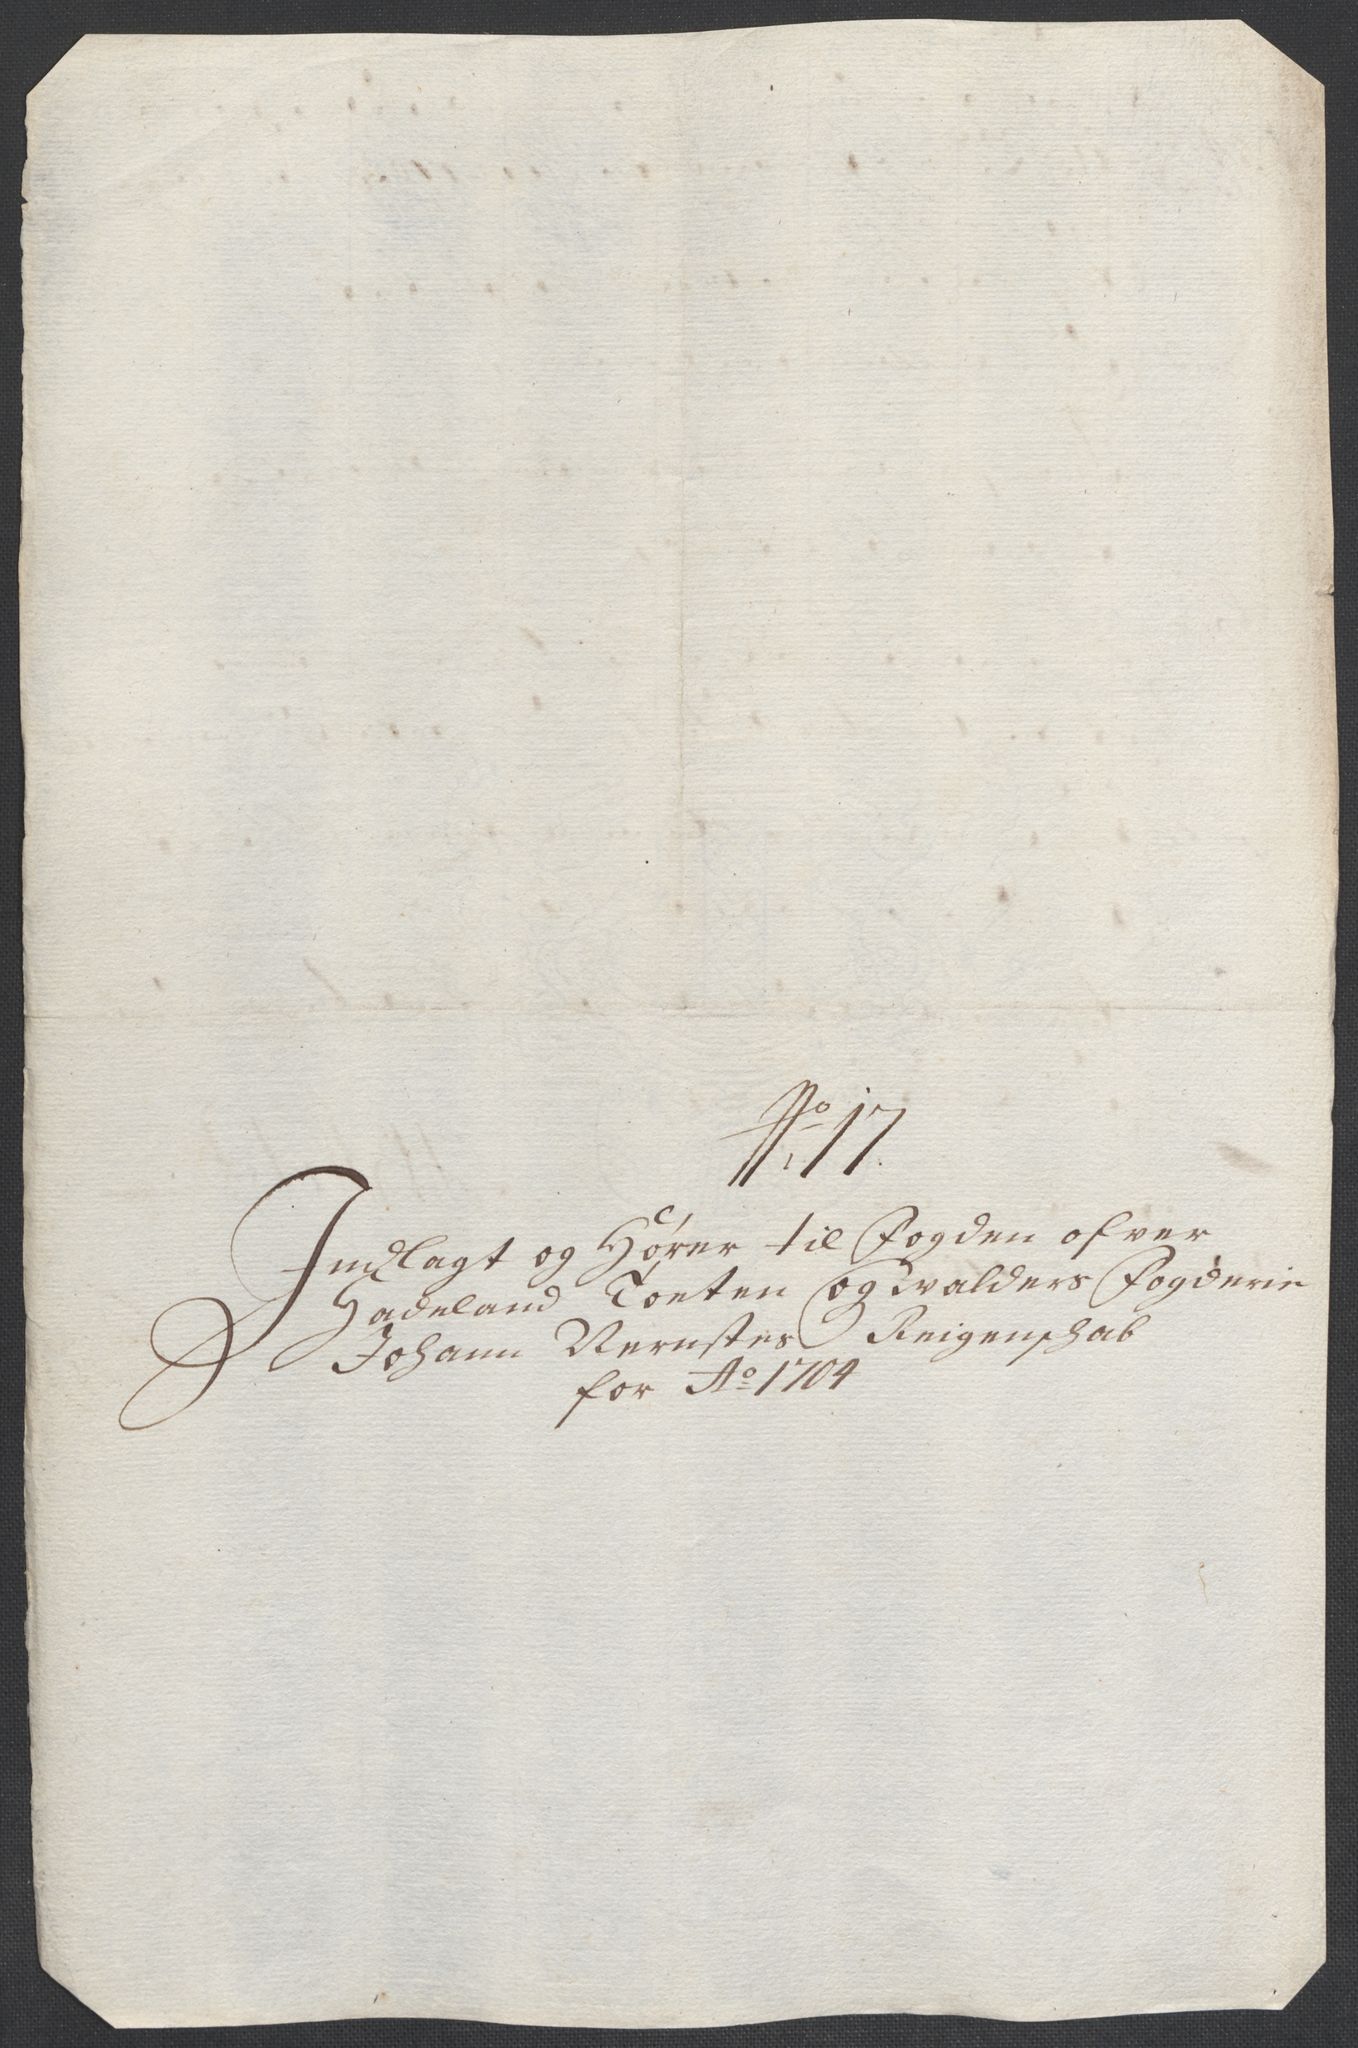 No. 17.
Indlagt og Hører til Fogden ofver
Hadeland Toeten og Walders Fogderie
Johann Rernstes Reigenschab
for Ao 1704